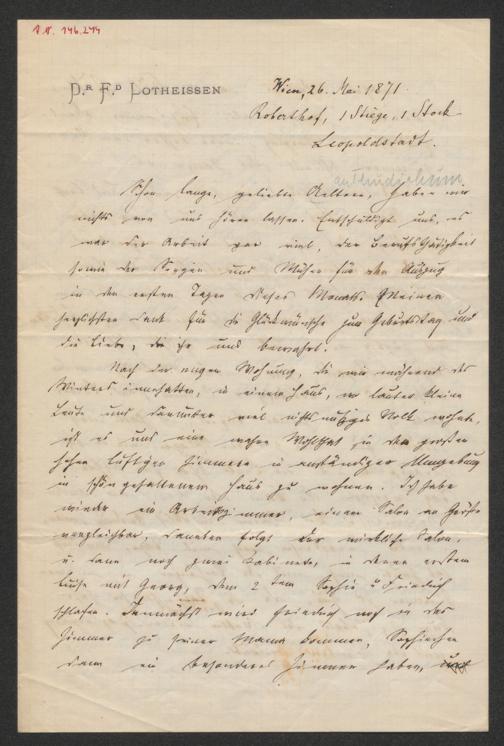 I.N. 146.244
Dr Fd LOTHEISSEN
Wien, 26. Mai 1871.
Roberthof, 1 Stiege, 1 Stock
Leopoldstadt.
Schon lange, geliebte Aeltern, haben wir
nichts von uns hören lassen. Entschuldigt uns, es
war der Arbeit gar viel, der Berufsthätigkeit
sowie der Sorgen und Mühen für den Auszug
in den ersten Tagen dieses Monats. Meinen
herzlichsten Dank für die Glückwünsche zum Geburtstag und
die Liebe, die ihr uns bewahrt.
Nach der engen Wohnung, die wir während des
Winters innehatten, in einem Haus, wo lauter kleine
Leute und darunter viel nichtsnutziges Volk wohnte,
ist es uns eine wahre Wohlthat in den großen
hohen luftigen Zimmern in anständiger Umgebung
in schön gehaltenem Haus zu wohnen. Ich habe
wieder ein Arbeitszimmer, einem Salon an Größe
vergleichbar, daneben folgt der wirkliche Salon,
u. dann noch zwei Kabinete, in deren erstem
Luise mit Georg, dem 2tem Sophie u Friedrich
schlafen. Demnächst wird Friedrich noch in das
Zimmer zu seiner Mama kommen, Sophiechen
dann ein besonderes Zimmer haben,